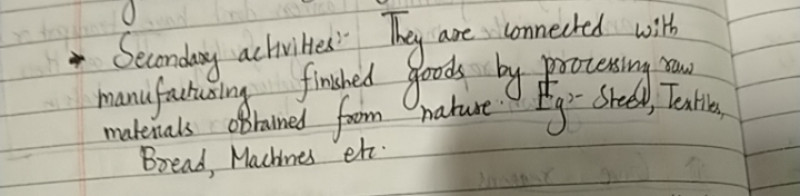 * Secondary activities:- They are connected with
manufacturing finished goods by processing raw
materials obtained from nature. Eg:- Steel, Textiles,
Bread, Machines etc.